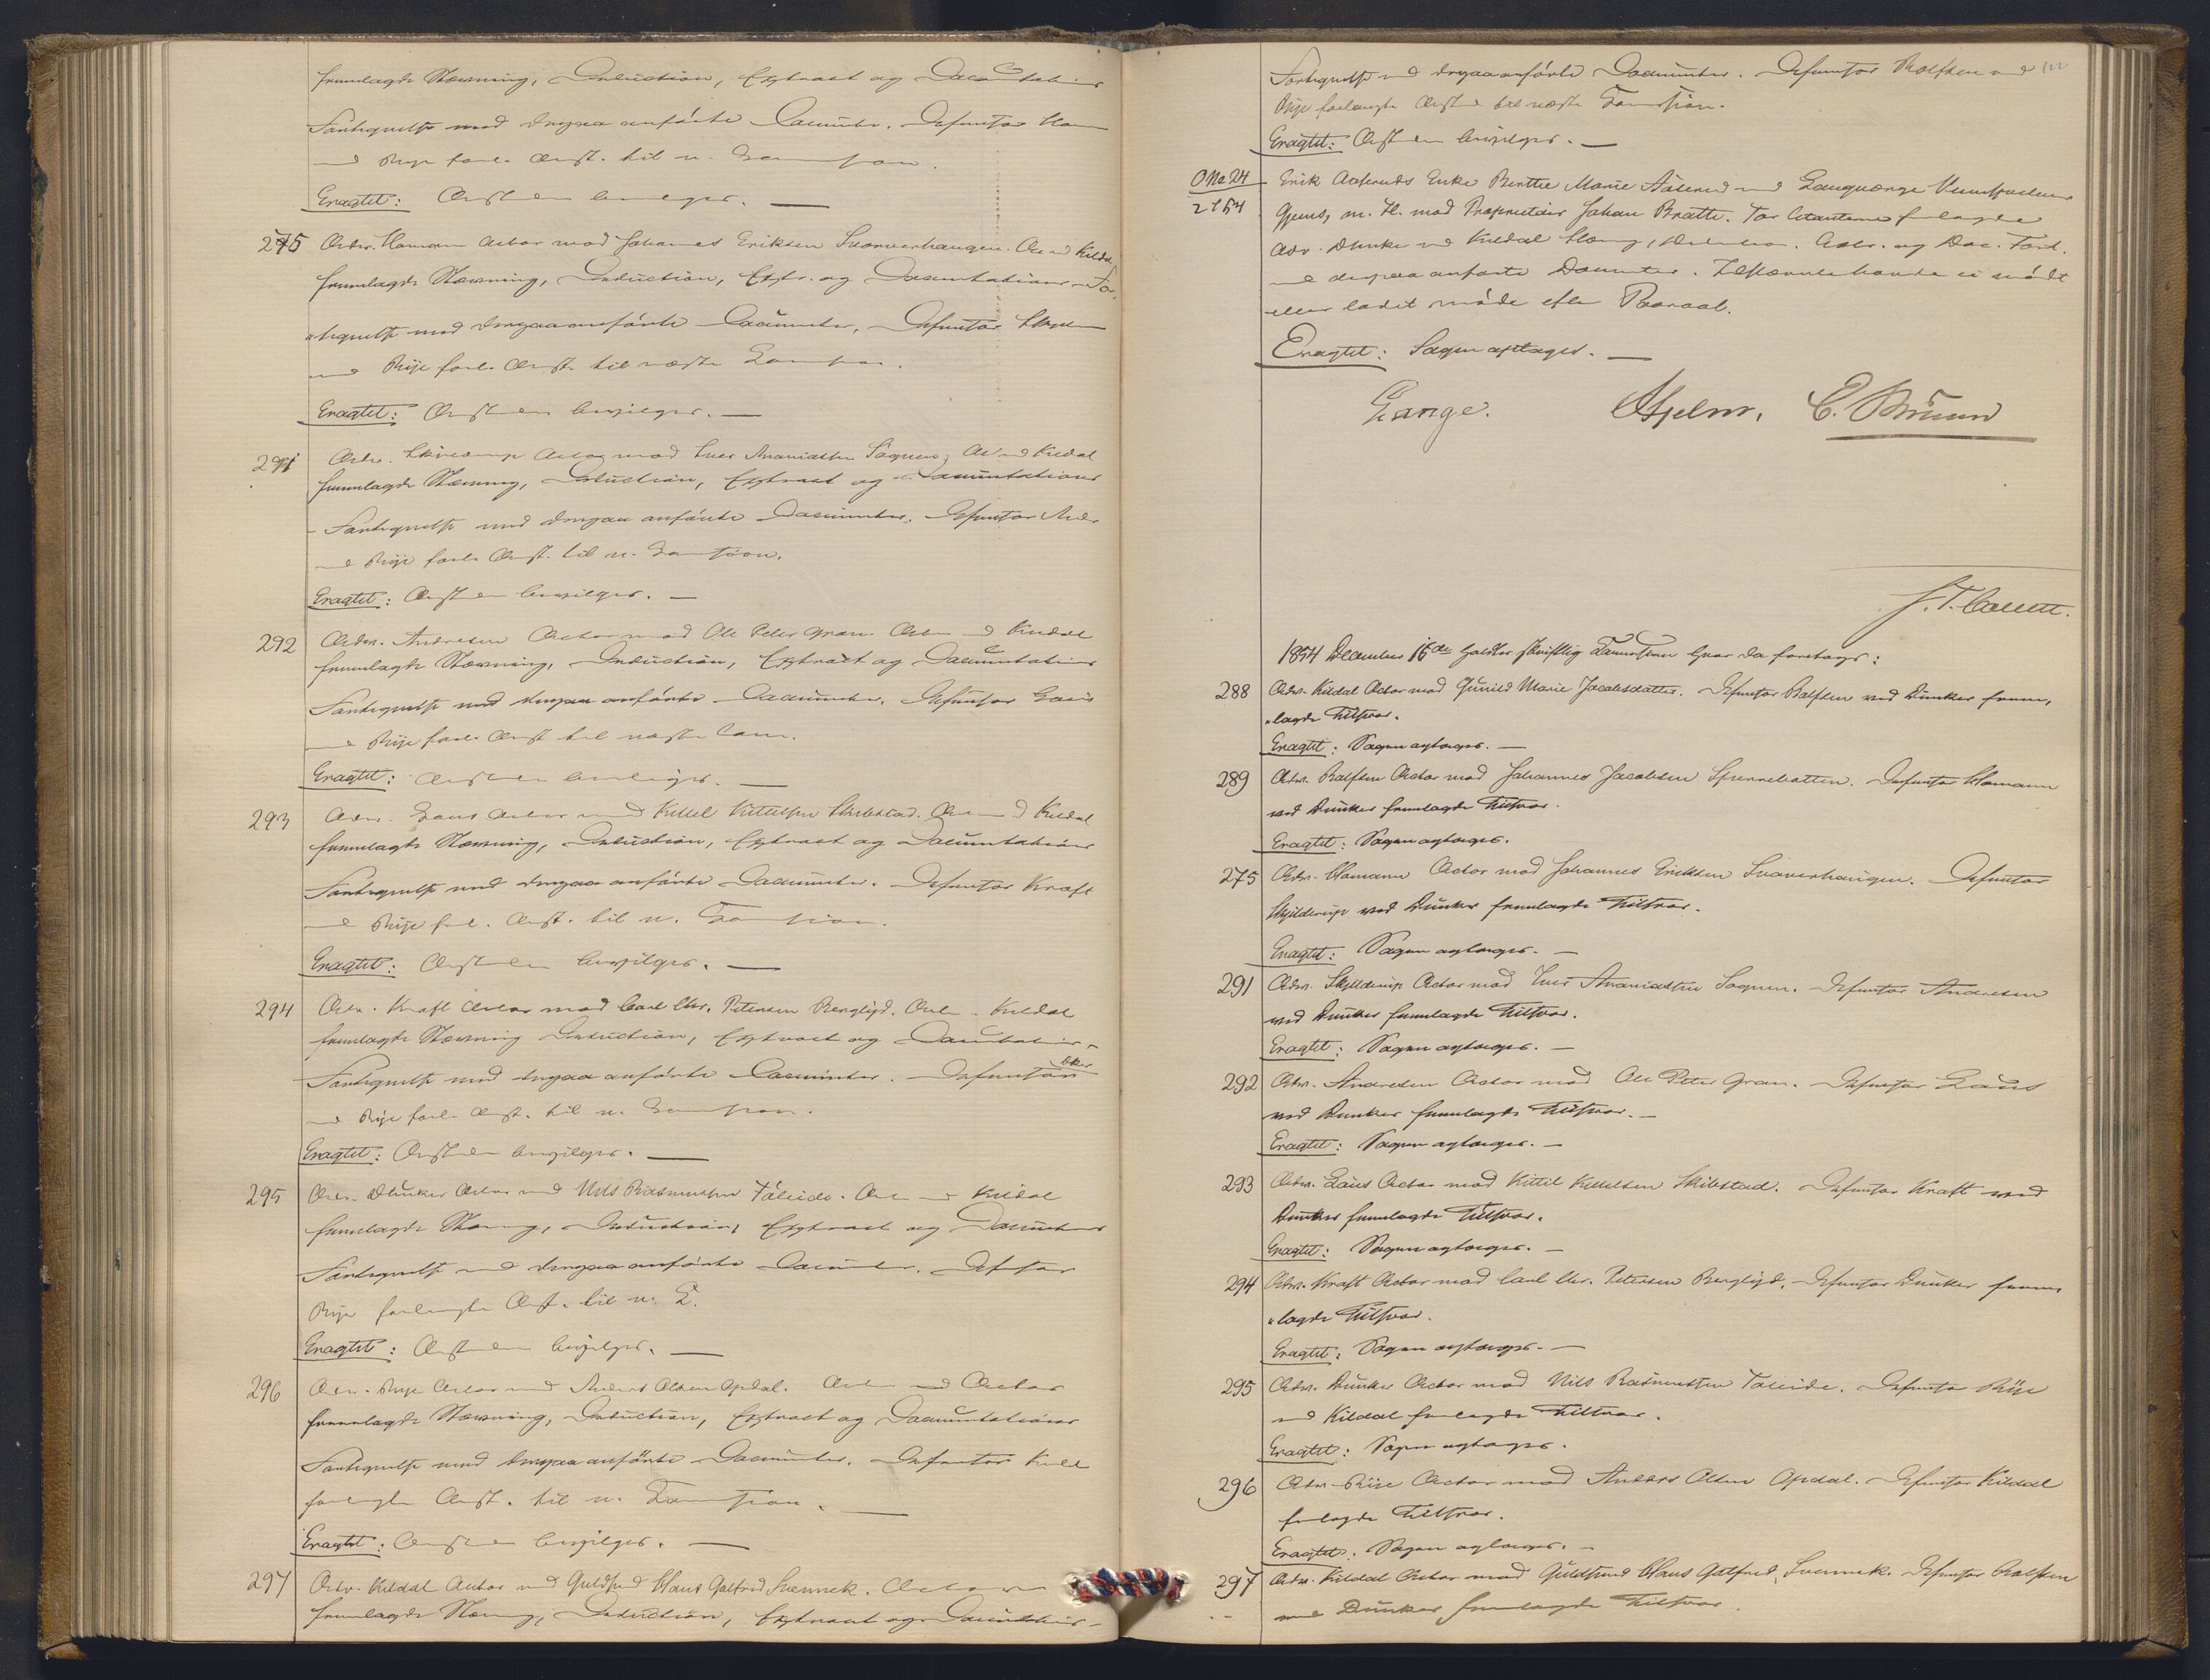 fremlagde Stævning, Induction, Extract og Documentations
Fortegnelse med derpaa anførte Documenter. Defensor
ved Rije forl. Anst. til n.
Eragtet: Anstanden bevilges. —
275 Adv. Homann Actor mod Johannes Eriksen Svarverhaugen. Act. ved Kildal
fremlagde Stævning, Induction, Extr. og Documentations-For-
tegnelse med derpaa anførte Documenter, Defensor
ved Rije forl. Anst. til næste Session.
Eragtet: Anstanden bevilges. —
291 Adv. Skjelderup Actor mod Iver Ananiassen Sognen, Act. ved Kildal
fremlagde Stævning, Induction, Extract og Documentations
Fortegnelse med derpaa anførte Documenter. Defensor Andr
ved Rije forl. Anst. til n. Session.
Eragtet: Anstanden bevilges. —
292 Adv. Andresen Actor mod Ole Peter Gran. Act. ved Kildal
fremlagde Stævning, Induction, Extract og Documentations
Fortegnelse med derpaa anførte Documenter. Defensor Lous
ved Rije forl. Anst til næste
Eragtet: Anstanden bevilges. —
293 Adv. Lous Actor mod Kittel Kittelsen Skibstad. Act. ved Kildal
fremlagde Stævning, Induction, Extract og Documentations
Fortegnelse med derpaa anførte Documenter. Defensor Kraft
ved Rije forl. Anst. til n. Session.
Eragtet: Anstanden bevilges. —
294 Adv. Kraft Actor mod Carl Chr. Petersen Berglyd. Act. Kildal
fremlagde Stævning Induction, Extract og
Fortegnelse med derpaa anførte Documenter. Defensor
ved Rije forl. Anst. til n. Session.
Eragtet: Anstanden bevilges. —
295 Adv. Dunker Actor mod Nils Rasmussen Taleide. Act. ved Kildal
fremlagde Stævning, Induction, Extract og
Fortegnelse med derpaa anførte Documenter. Defensor
Rije forlangte Anst. til n. S.
Eragtet: Anstanden bevilges. —
296 Adv. Rije Actor mod Anders Olsen Opdal. Act. ved
fremlagde Stævning, Induction, Extract og Documentations
Fortegnelse med derpaa anførte Documenter. Defensor Kild
forlangte Anst. til n. Session. —
Eragtet: Anstanden bevilges. —
297 Adv. Kildal Actor mod Guldsmed Claus Gotfred Svennek.
fremlagde Stævning, Induction, Extract og
Fortegnelse med derpaa anførte Documenter. Defensor Rolfsen ved
Rije forlangte Anstand til næste Session.
Eragtet: Anstanden bevilges. —
O No 24 Erik Aaseruds Enke Berthe Marie Aaserud med Laugværge
2 1854 m. fl. mod Proprietair Johan Bratte. For Citanterne fremlagde
Adv. Dunker ved Kildal Stævn., Induction, Extr. og Doc. Fort.
med derpaa anførte Documenter. Indstævnte havde ei mødt
eller ladet møde efter Paaraab.
Eragtet: Sagen optages. —
Lange. Hjelm. C. Bruun
1854 December 16de holdtes skriftlig Session hvor da foretoges:
288 Adv. Kildal Actor mod Gunild Marie Jacobsdatter. Defensor Rolfsen ved Dunker frem-
lagde Tilsvar.
Eragtet: Sagen optages. —
289 Adv. Rolfsen Actor mod Johannes Jacobsen Spernesbotten. Defensor Homann
ved Dunker fremlagde Tilsvar.
Eragtet: Sagen optages.
275 Adv. Homann Actor mod Johannes Eriksen Svarverhaugen. Defensor
Skjelderup ved Dunker fremlagde Tilsvar.
Eragtet: Sagen optages. —
291 Adv. Skjelderup Actor mod Iver Ananiassen Sognen. Defensor Andresen
ved Dunker fremlagde Tilsvar.
Eragtet: Sagen optages. —
292 Adv. Andresen Actor mod Ole Peter Gran. Defensor Lous
ved Dunker fremlagde Tilsvar. —
Eragtet: Sagen optages. —
293 Adv. Lous Actor mod Kittil Kittelsen Skibstad. Defensor Kraft ved
Dunker fremlagde Tilsvar.
Eragtet: Sagen optages. —
294 Adv. Kraft Actor mod Carl Chr. Petersen Berglyd. Defensor Dunker frem-
lagde Tilsvar.
Eragtet: Sagen optages. —
295 Adv. Dunker Actor mod Nils Rasmussen Taleide. Defensor Rije
ved Kildal fremlagde Tilsvar.
Eragtet: Sagen optages.
296 Adv. Rije Actor mod Anders Olsen Opdal. Defensor Kildal
fremlagde Tilsvar.
Eragtet: Sagen optages. —
297 Adv. Kildal Actor mod Guldsmed Claus Gotfred Svennek. Defensor Rolfsen
ved Dunker fremlagde Tilsvar.